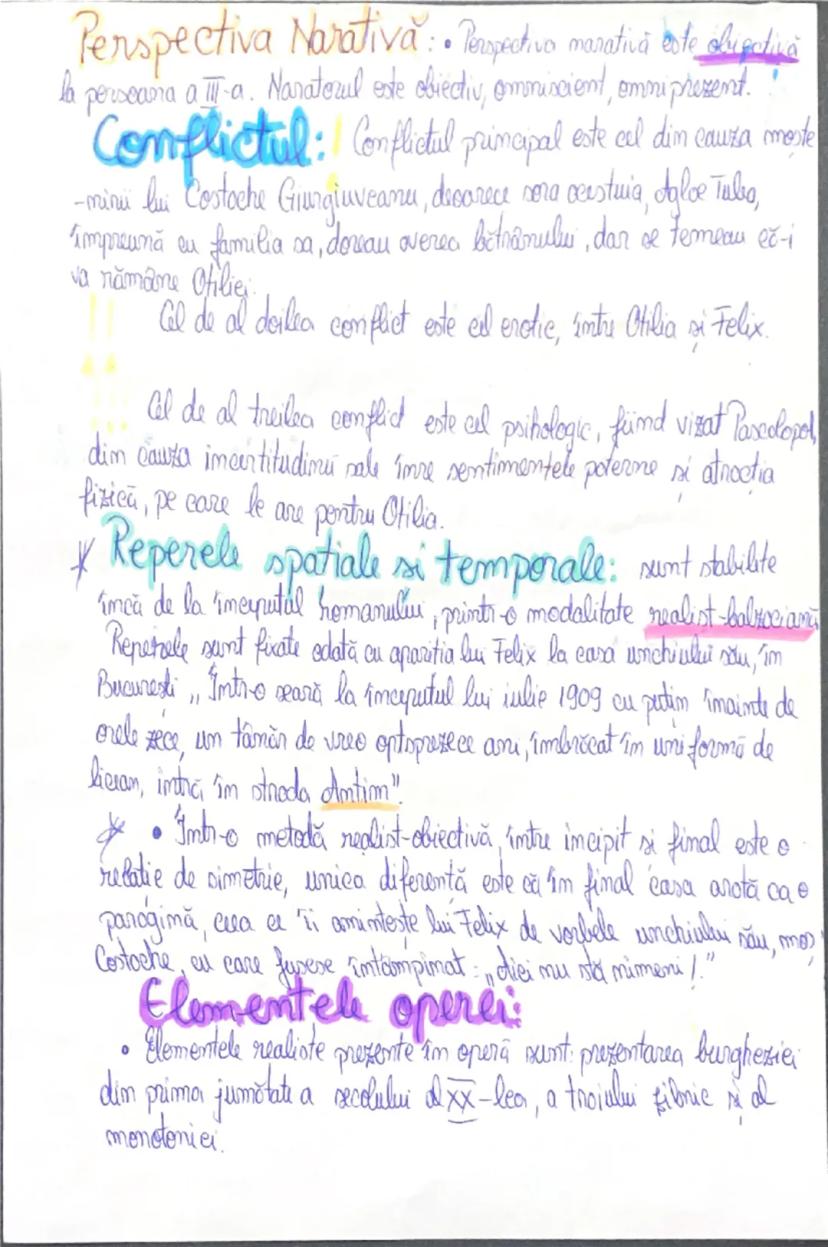 Perspectiva Narativă: • Perspectiva narativă este obiectivă
la persoana a III-a. Naratorul este obiectiv, omniscient, omniprezent.
Conflictul: ! Conflictul principal este cel din cauza mește
-nirii lui Costache Giurgiuveanu, deoarece sora acestuia, Aglae Tulea,
împreună cu familia sa, doreau averea bătrânului, dar se temeau că-i
va rămâne Otiliei.
!! Cel de al doilea conflict este cel erotic, între Otilia și Felix.
!! Cel de al treilea conflict este cel psihologic, fiind vizat Pascalopol,
din cauza incertitudinii sale înre sentimentele paterne și atracția
fizică, pe care le are pentru Otilia.
* Reperele spatiale si temporale: sunt stabilite
încă de la începutul romanului, printr-o modalitate realist-balzaciană
Reperele sunt fixate odată cu apariția lui Felix la casa unchiului său, în
București „Într-o seară la începutul lui iulie 1909 cu puțin înainte de
orele zece, un tânăr de vreo optsprezece ani, îmbrăcat în uniformă de
licean, intră în strada Antim".
* • Într-o metodă realist-obiectivă, între incipit si final este o
relatie de simetrie, unica diferență este că în final casa arată ca o
paragină, ceea ce îi amintește lui Felix de vorbele unchiului său, moș
Costache, cu care fusese întâmpinat: „Aici nu stă nimeni!."
Elementele operei:
• Elementele realiste prezente în operă sunt: prezentarea burgheziei
din prima jumătate a secolului al XX-lea, a traiului zilnic și al
monotoniei.